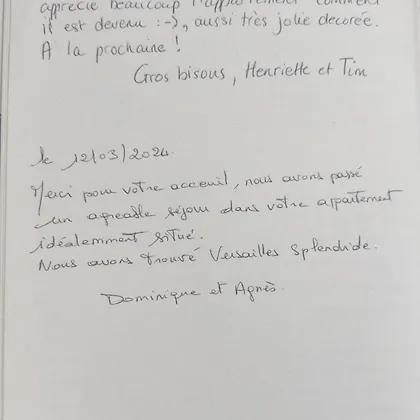 apprécie beaucoup l'appartement comment
il est devenu :-), aussi très jolie decorée.
A la prochaine !
Gros bisous, Henriette et Tim
le 12/03/2024.
Merci pour votre acceuil, nous avons passé
un agreable séjour dans votre appartement
idéalemment situé.
Nous avons trouvé Versailles splendide.
Dominique et Agnès.